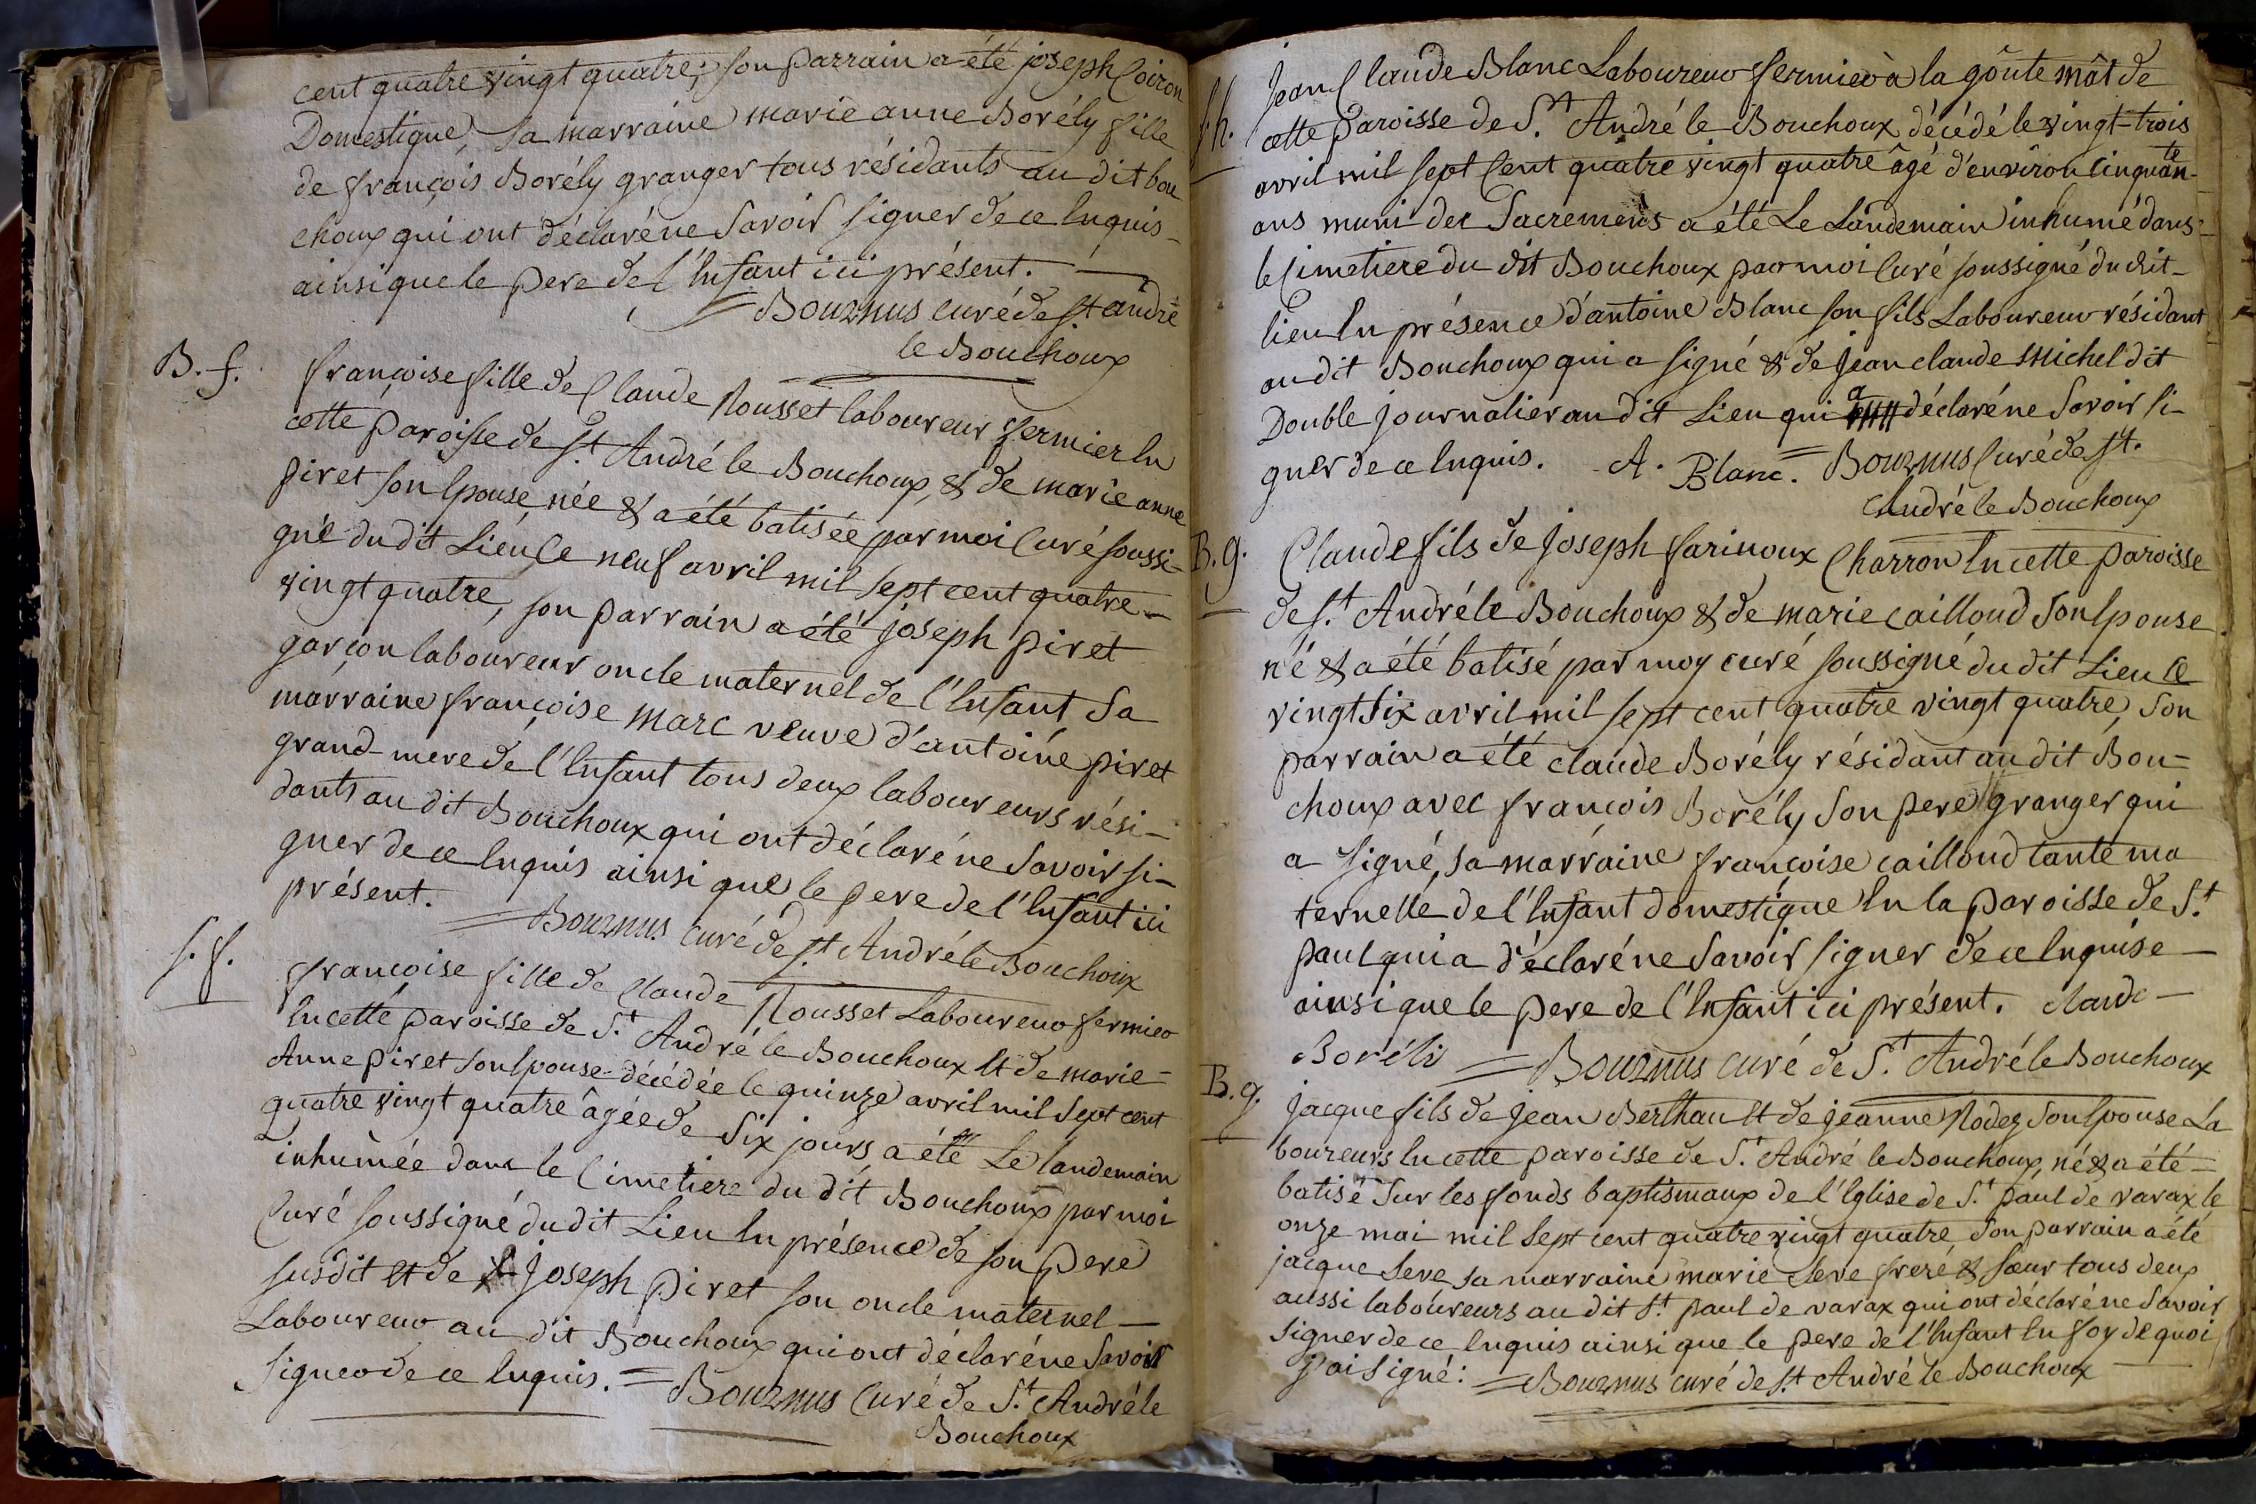 cent quatre vingt quatre; son parrain a été joseph Coiron
Domestique, sa marraine marie anne Borély fille
de françois Borély granger tous résidants au dit bou
choux qui ont déclaré ne savoir signer de ce Enquis-
ainsi que le pere de l'Enfant ici présent.
= Bournus curé de st andré
le Bouchoux
B. f. françoise fille de Claude Rousset laboureur fermier En
cette paroisse de St André le Bouchoux, & de marie anne
piret son Epouse, née & a été batisée par moi Curé soussi-
gné du dit Lieu Ce neuf avril mil sept cent quatre-
vingt quatre, son parrain a été joseph piret
garçon laboureur oncle maternel de l'Enfant sa
marraine françoise marc veuve d'antoine piret
grand mere de l'Enfant tous deux laboureurs rési-
dants au dit Bouchoux qui ont déclaré ne savoir si-
gner de ce Enquis ainsi que le pere de l'Enfant ici
présent.
= Bournus curé de st André le Bouchoux
s. f. françoise fille de Claude Rousset Laboureur fermier
En cette paroisse de St André le Bouchoux Et de marie-
Anne piret son Epouse décédée le quinze avril mil sept cent
quatre vingt quatre âgée de six jours a été Le landemain
inhumée dans le Cimetiere du dit Bouchoux par moi
Curé soussigné du dit Lieu En présence de son pere
susdit Et de joseph piret son oncle maternel-
Laboureur au dit Bouchoux qui ont déclaré ne savoir
signer de ce Enquis. = Bournus Curé de St André le
Bouchoux
s. h. jean Claude Blanc Laboureur fermier à la goûte mât de
cette paroisse de St André le Bouchoux décédé le vingt-trois
avril mil sept Cent quatre vingt quatre âgé d'environ Cinquante
ans muni des Sacremens a été Le Landemain inhumé dans
le Cimetiere du dit Bouchoux par moi Curé soussigné du dit-
Lieu En présence d'antoine Blanc son fils Laboureur résidant
au dit Bouchoux qui a signé & de jean claude michel dit
Double journalier au dit Lieu qui a déclaré ne savoir si-
gner de ce Enquis. A. Blanc. = Bournus Curé de st.
André le Bouchoux
B. g. Claude fils de joseph farinoux Charron En cette paroisse
de St André le Bouchoux & de marie cailloud son Epouse
né & a été batisé par moy curé soussigné du dit Lieu Ce
vingt six avril mil sept cent quatre vingt quatre, son
parrain a été claude Borély résidant au dit Bou-
choux avec françois Borély son pere granger qui
a signé, sa marraine françoise cailloud tante ma
ternelle de l'Enfant domestique En la paroisse de St
paul qui a déclaré ne savoir signer de ce Enquise-
ainsi que le pere de l'Enfant ici présent. claude-
Boréli = Bournus curé de St André le Bouchoux
B. g. jacque fils de jean Berthau Et de jeanne Rodez son Epouse La
boureurs En cette paroisse de St André le Bouchoux, né & a été-
batisé sur les fonds baptismaux de l'Eglise de St paul de varax le
onze mai mil sept cent quatre vingt quatre son parrain a été
jacque seve sa marraine marie seve frere & sœur tous deux
aussi laboureurs au dit st paul de varax qui ont déclaré ne savoir
signer de ce Enquis ainsi que le pere de l'Enfant En foy de quoi
j'ai signé: = Bournus curé de st André le Bouchoux